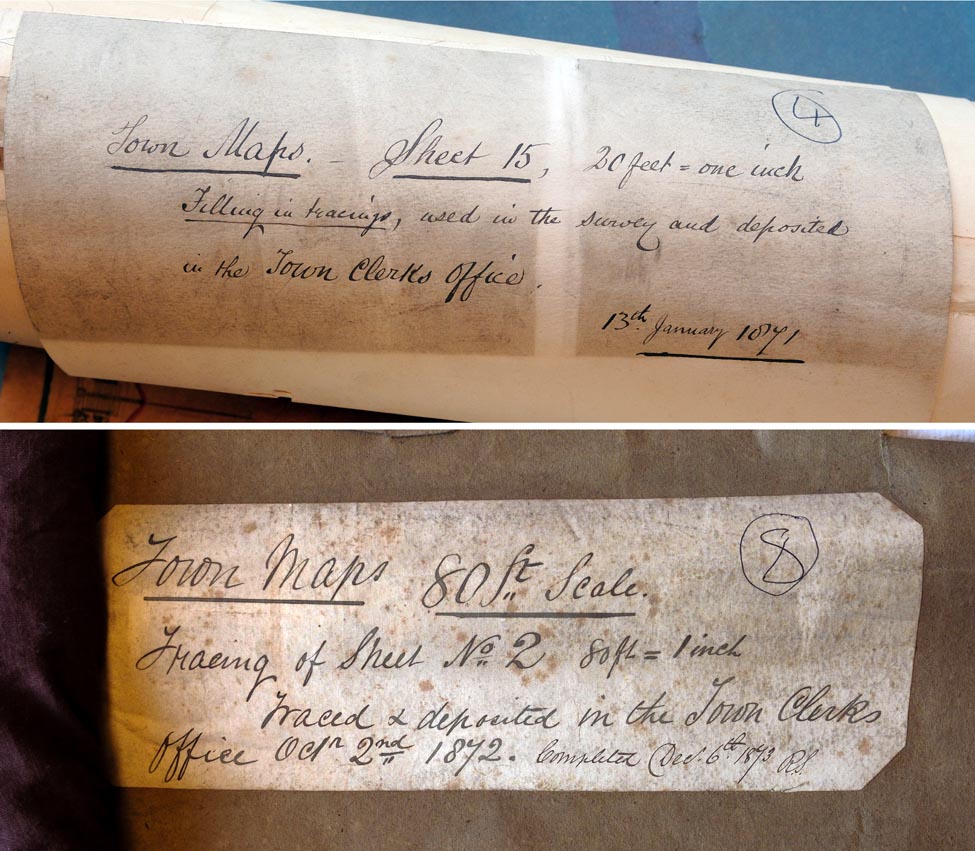 4
Town Maps. - Sheet 15, 20 feet = one inch
Filling in tracings, used in the survey and deposited
in the Town Clerks Office.
13th January 1871
8
Town Maps 80 Ft Scale.
Tracing of Sheet No 2 80ft = 1 inch
Traced & deposited in the Town Clerks
Office Octr 2nd 1872. Completed Dec. 6th 1873 R.S.